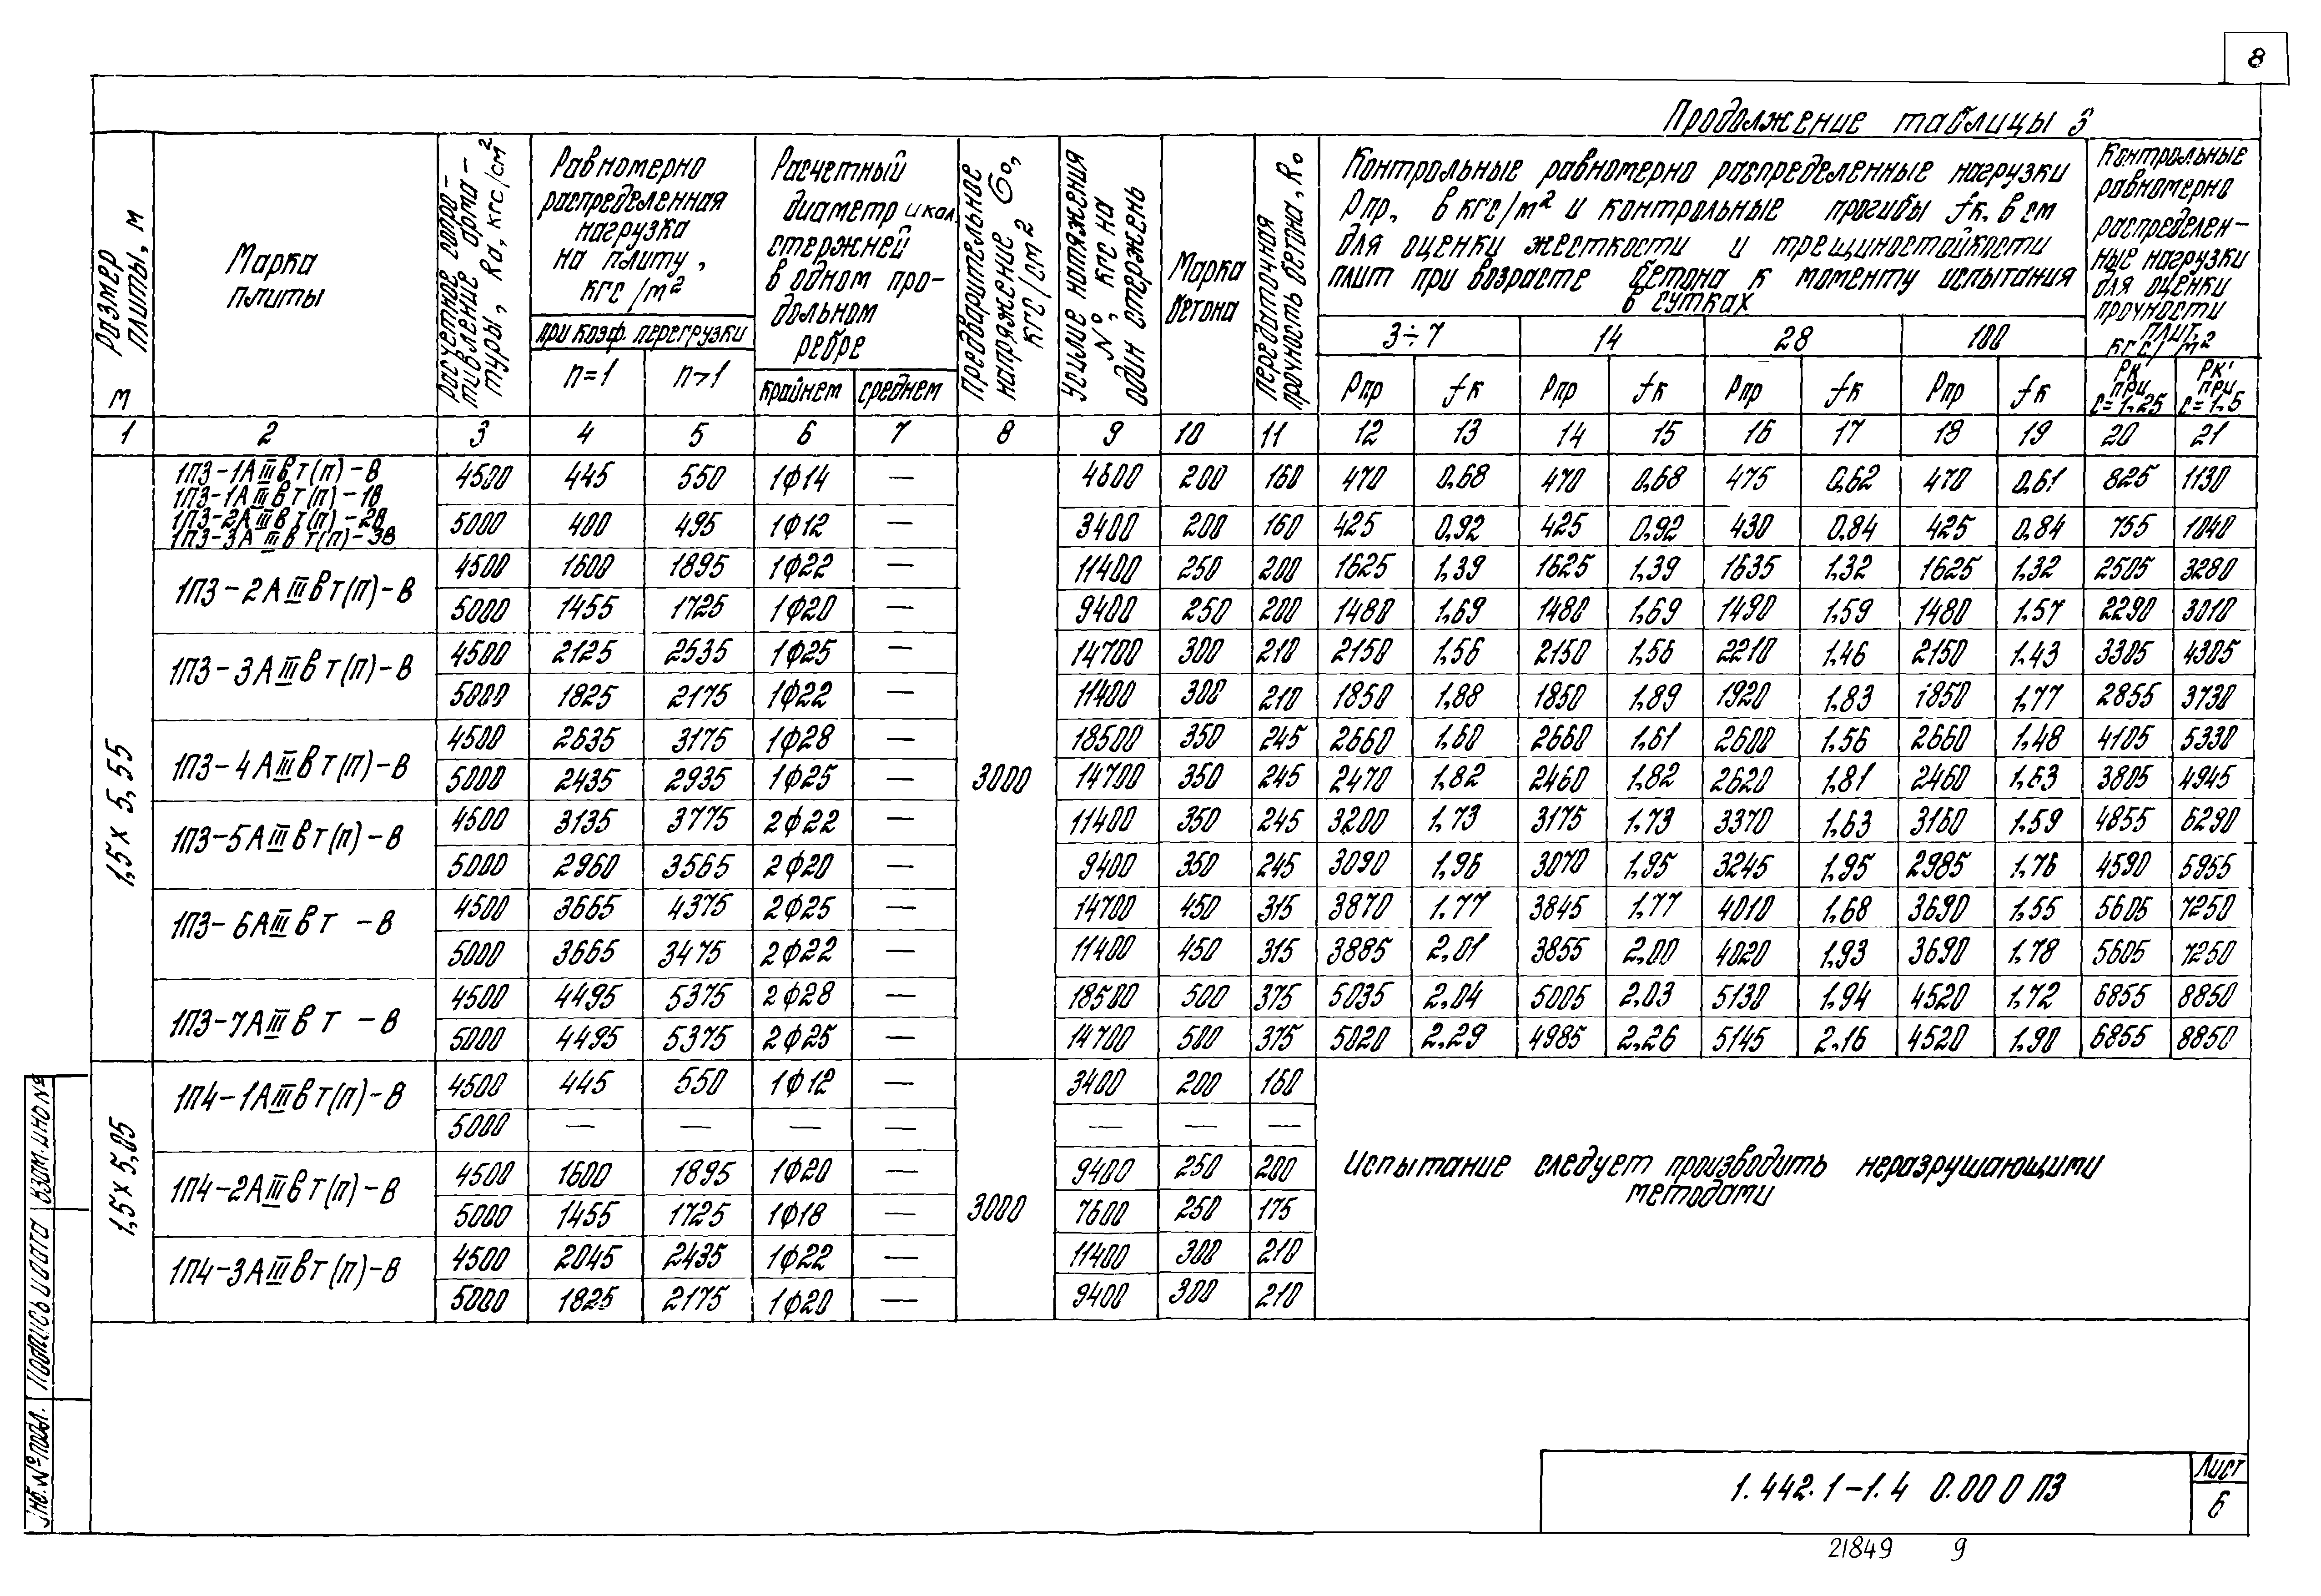 8
Продолжение таблицы 3
Размер плиты, м
м
Марка плиты
Расчетное сопротивление арматуры, Ra, кгс/см²
Равномерно распределенная нагрузка на плиту, кгс/м²
при коэф. перегрузки
n=1 n>1
Расчетный диаметр и кол. стержней в одном продольном ребре
крайнем среднем
Предварительное напряжение σ₀, кгс/см²
Усилие натяжения N₀, кгс на один стержень
Марка бетона
Передаточная прочность бетона, R₀
Контрольные равномерно распределенные нагрузки
Рпр. в кгс/м² и контрольные прогибы fк. в см
для оценки жесткости и трещиностойкости
плит при возрасте бетона к моменту испытания
в сутках
3÷7 14 28 100
Рпр fк Рпр fк Рпр fк Рпр fк
Контрольные равномерно распределенные нагрузки для оценки прочности плит, кгс/м²
Рк' при с=1,25 Рк' при с=1,5
1 2 3 4 5 6 7 8 9 10 11 12 13 14 15 16 17 18 19 20 21
1,5х5,55
3000
1П3-1АIIIвт(п)-В
1П3-1АIIIвт(п)-1В
1П3-2АIIIвт(п)-2В
1П3-3АIIIвт(п)-3В
4500 445 550 1ф14 — 4600 200 160 470 0,68 470 0,68 475 0,62 470 0,61 825 1130
5000 400 495 1ф12 — 3400 200 160 425 0,92 425 0,92 430 0,84 425 0,84 755 1040
1П3-2АIIIвт(п)-В
4500 1600 1895 1ф22 — 11400 250 200 1625 1,39 1625 1,39 1635 1,32 1625 1,32 2505 3280
5000 1455 1725 1ф20 — 9400 250 200 1480 1,69 1480 1,69 1490 1,59 1480 1,57 2290 3010
1П3-3АIIIвт(п)-В
4500 2125 2535 1ф25 — 14700 300 210 2150 1,56 2150 1,56 2210 1,46 2150 1,43 3305 4305
5000 1825 2175 1ф22 — 11400 300 210 1850 1,88 1850 1,89 1920 1,83 1850 1,77 2855 3730
1П3-4АIIIвт(п)-В
4500 2635 3175 1ф28 — 18500 350 245 2660 1,60 2660 1,61 2600 1,56 2660 1,48 4105 5330
5000 2435 2935 1ф25 — 14700 350 245 2470 1,82 2460 1,82 2620 1,81 2460 1,63 3805 4945
1П3-5АIIIвт(п)-В
4500 3135 3775 2ф22 — 11400 350 245 3200 1,73 3175 1,73 3370 1,63 3160 1,59 4855 6290
5000 2960 3565 2ф20 — 9400 350 245 3090 1,96 3070 1,95 3245 1,95 2985 1,76 4590 5955
1П3-6АIIIвт -В
4500 3665 4375 2ф25 — 14700 450 315 3870 1,77 3845 1,77 4010 1,68 3690 1,55 5605 7250
5000 3665 3475 2ф22 — 11400 450 315 3885 2,01 3855 2,00 4020 1,93 3690 1,78 5605 7250
1П3-7АIIIвт -В
4500 4495 5375 2ф28 — 18500 500 375 5035 2,04 5005 2,03 5130 1,94 4520 1,72 6855 8850
5000 4495 5375 2ф25 — 14700 500 375 5020 2,29 4985 2,26 5145 2,16 4520 1,90 6855 8850
1,5х5,05
3000
1П4-1АIIIвт(п)-В
4500 445 550 1ф12 — 3400 200 160
5000 — — — — — — —
1П4-2АIIIвт(п)-В
4500 1600 1895 1ф20 — 9400 250 200
5000 1455 1725 1ф18 — 7600 250 175
1П4-3АIIIвт(п)-В
4500 2045 2435 1ф22 — 11400 300 210
5000 1825 2175 1ф20 — 9400 300 210
Испытание следует производить неразрушающими
методами
Взам. инв №
Подпись и дата
Инв. № подл.
1.442.1-1.4 0.000 ПЗ
Лист
6
21849 9